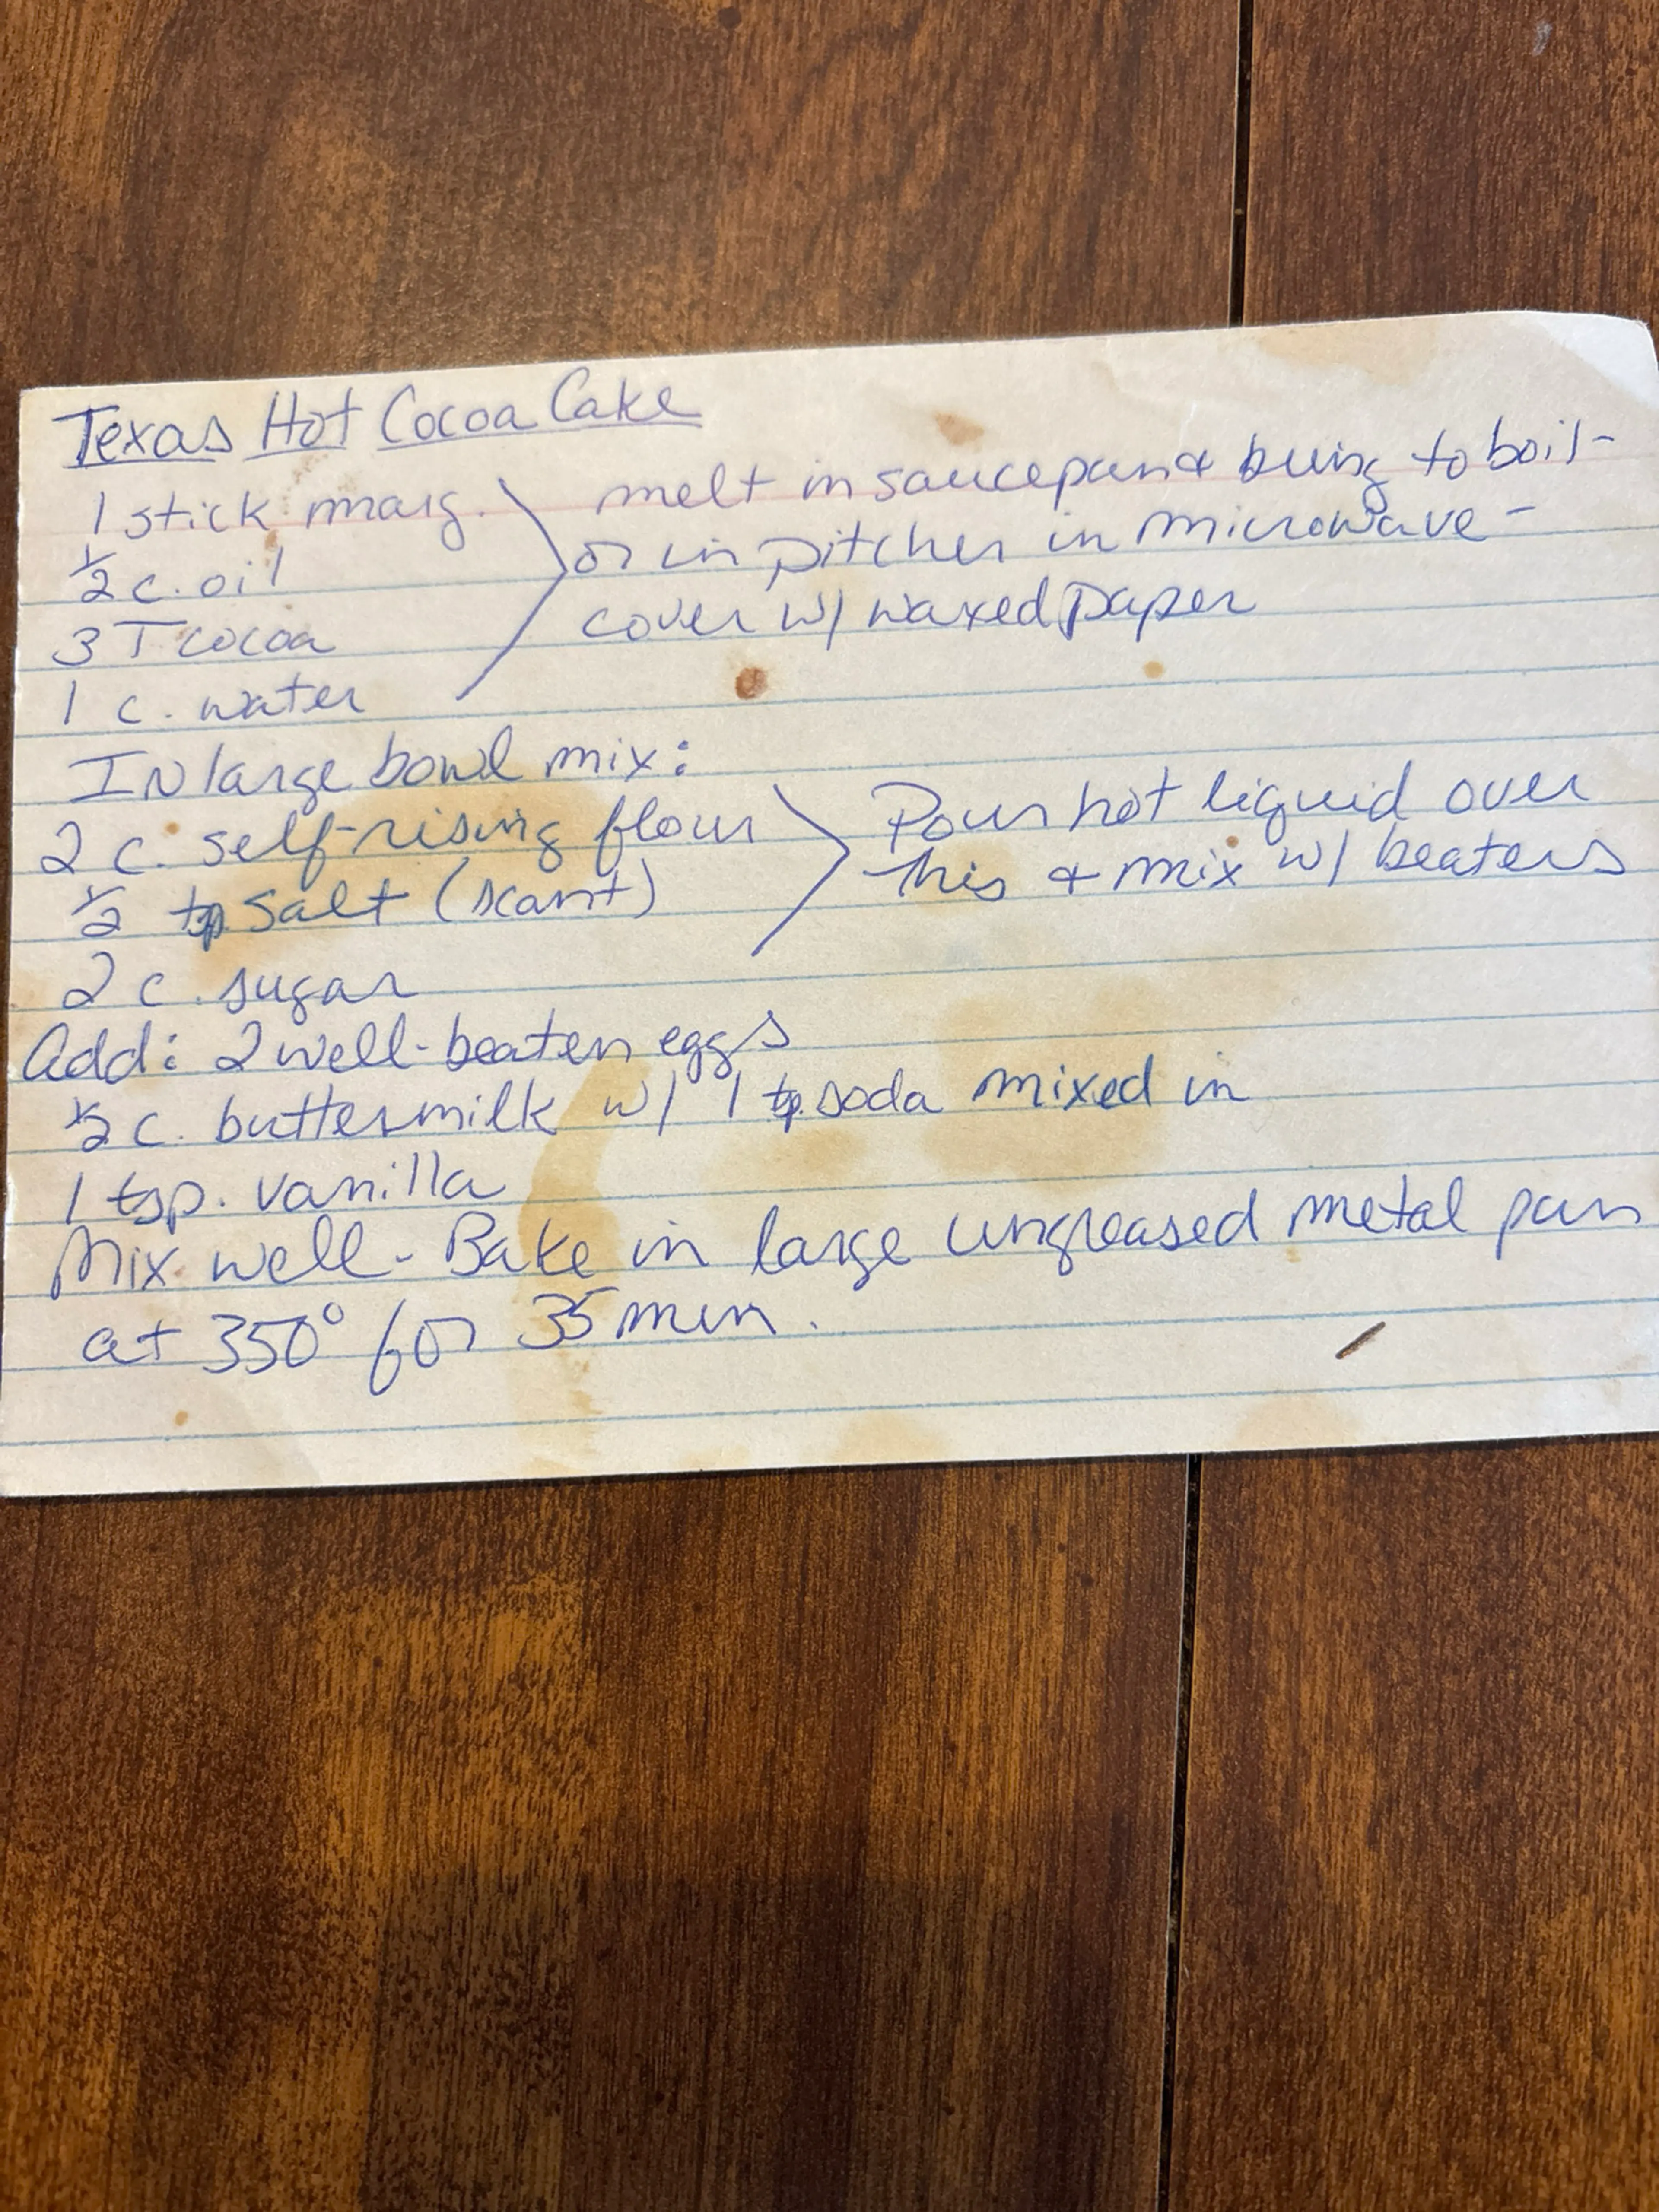 Texas Hot Cocoa Cake
1 stick marg.
½ c. oil
3 T cocoa
1 c. water
melt in saucepan & bring to boil -
or in pitcher in microwave -
cover w/ waxed paper
In large bowl mix:
2 c. self-rising flour
½ tsp salt (scant)
2 c. sugar
Pour hot liquid over
this & mix w/ beaters
Add: 2 well-beaten eggs
½ c. buttermilk w/ 1 tsp. soda mixed in
1 tsp. vanilla
Mix well - Bake in large ungreased metal pan
at 350° for 35 min.